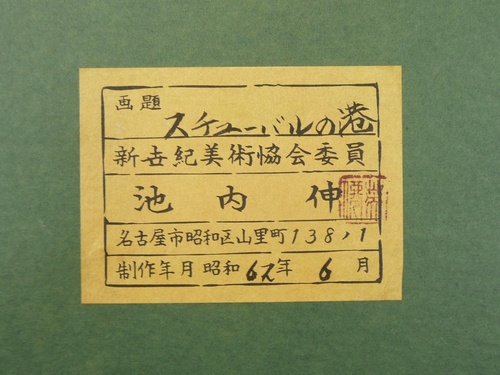 画題 スチューバルの港
新世紀美術協会委員
池内 伸
名古屋市昭和区山里町138,1
制作年月 昭和62年6月